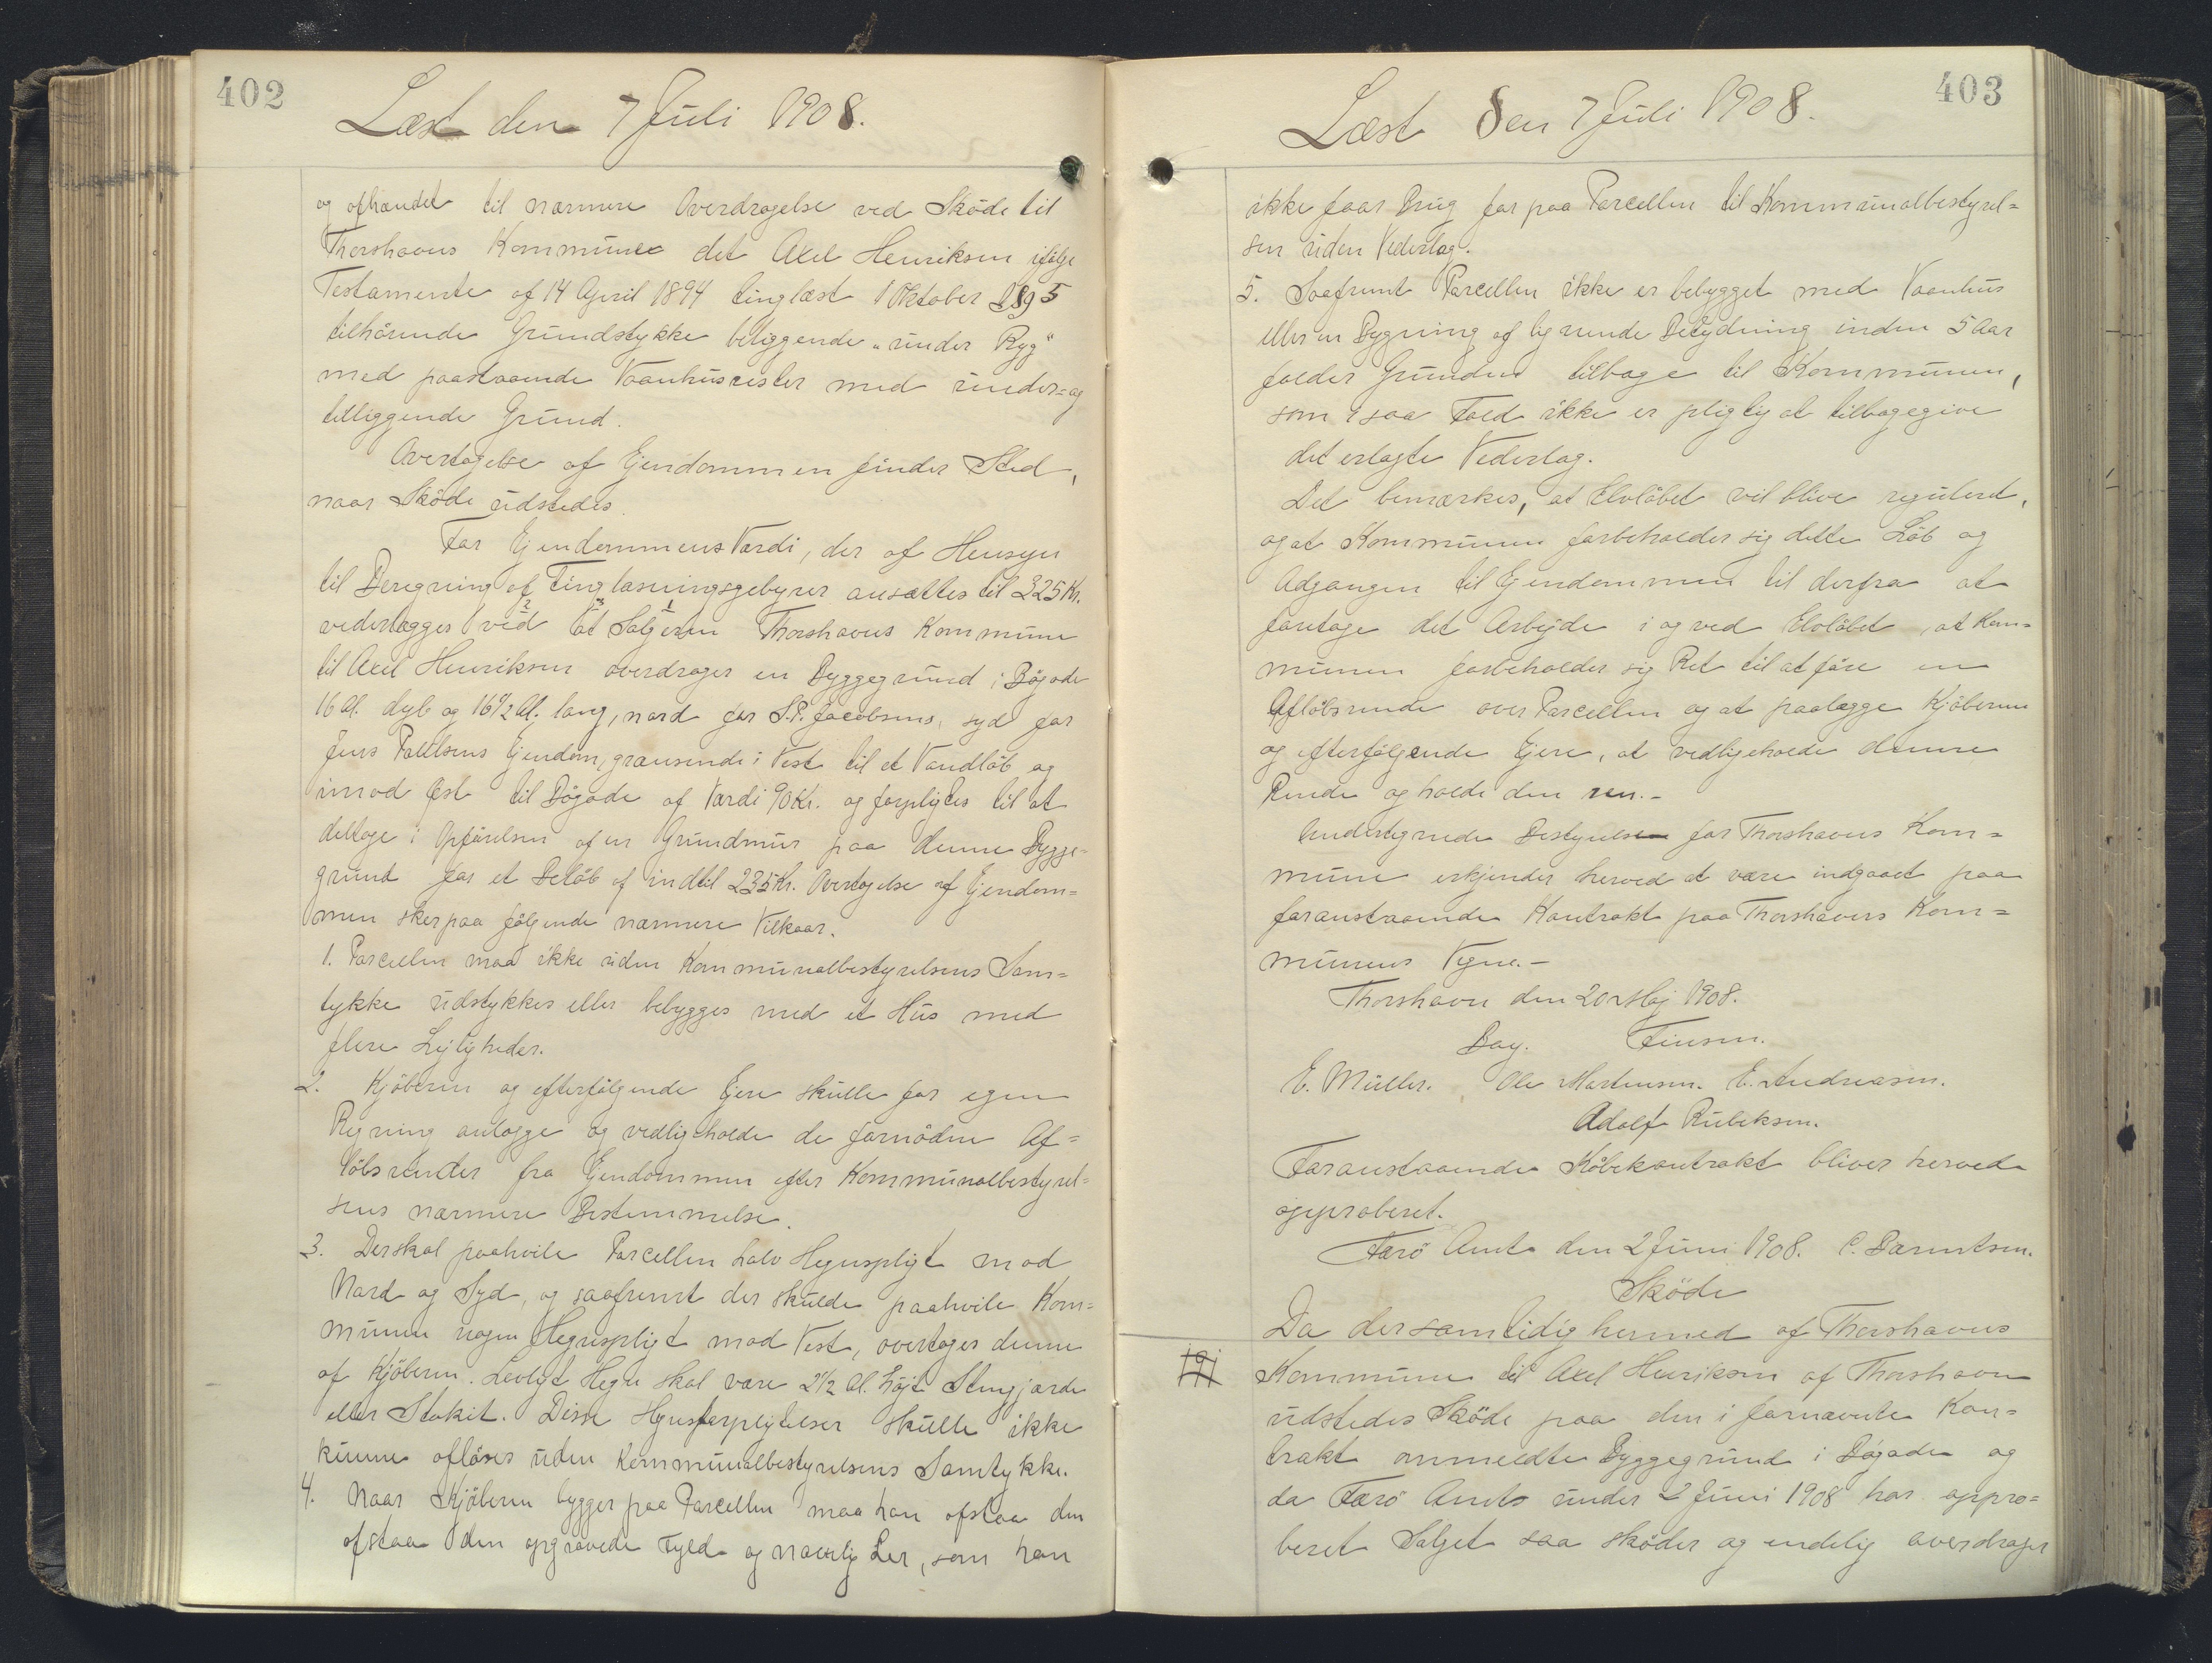 402
Læst den 7 Juli 1908.
og afhændet til nærmere Overdragelse ved Sköde til
Thorshavns Kommune det Axel Henriksen ifølge
Testamente af 14 April 1894 tinglæst 1 Oktober 1895
tilhörende Grundstykke beliggende "under Ryg"
med paastaaende Vaanhusrester med under= og
tilliggende Grund.
Overtagelse af Ejendommen finder Sted,
naar Sköde udstedes.
For Ejendommens Værdi, der af Hensyn
til Beregning af Tinglæsningsgebyrer ansættes til 325 Kr.
vederlægges ved at Sælgeren Thorshavns Kommune
til Axel Henriksen overdrager en Byggegrund i Bøgade
16 Al. dyb og 16 1/2 Al. lang, nord for S.P. Jacobsens, syd for
Jens Poulsens Ejendom, grænsende i Vest til et Vandløb og
imod Øst til Bøgade af Værdi 90 Kr. og forpligtes til at
deltage i Opførelsen af en Grundmur paa denne Bygge-
grund for et Beløb af indtil 235 Kr. Overtagelse af Ejendom=
men sker paa følgende nærmere Vilkaar.
1. Parcellen maa ikke uden Kommunalbestyrelsens Sam=
tykke udstykkes eller bebygges med et Hus med
flere Lejligheder.
2. Kjøberen og efterfølgende Ejere skulle for egen
Regning anlægge og vedligeholde de fornødne Af=
løbsrender fra Ejendommen efter Kommunalbestyrel=
sens nærmere Bestemmelse.
3. Der skal paahvile Parcellen halv Hegnspligt mod
Nord og Syd, og saafremt der skulde paahvile Kom=
munen nogen Hegnspligt mod Vest, overtages denne
af Kjøberen. Lovligt Hegn skal være 2 1/2 Al. højt Stengjærde
eller Stakit. Disse Hegnsforpligtelser skulle ikke
kunne afløses uden Kommunalbestyrelsens Samtykke.
4. Naar Kjøberen bygger paa Parcellen maa han afstaa den
afstaa den opgravede Fyld og navnlig Ler, som han
403
Læst den 7 Juli 1908.
ikke faar Brug for paa Parcellen til Kommunalbestyrel=
sen uden Vederlag.
5. Saafremt Parcellen ikke er bebygget med Vaanhus
eller en Bygning af lignende Betydning inden 5 Aar
falder Grunden tilbage til Kommunen,
som i saa Fald ikke er pligtig at tilbagegive
det erlagte Vederlag.
Det bemærkes, at Elvløbet vil blive reguleret,
og at Kommunen forbeholder sig dette Løb og
Adgangen til Ejendommen til derfra at
foretage det Arbejde i og ved Elvløbet, at Kom=
munen forbeholder sig Ret til at føre en
Afløbsrende over Parcellen og at paalægge Kjøberen
og efterfølgende Ejere, at vedligeholde denne
Rende og holde den ren.-
Undertegnede Bestyrelse for Thorshavns Kom=
mune erkjender herved at være indgaaet paa
foranstaaende Kontrakt paa Thorshavns Kom=
munens Vegne.-
Thorshavn den 20 Maj 1908.
Bay. Finsen.
E. Müller. Ole Mortensen. E. Andreasen.
Adolf Rubeksen.
Foranstaaende Købekontrakt bliver herved
approberet.
Færö Amt den 2 Juni 1908. C. Bærentsen.
Sköde
Da der samtidig hermed af Thorshavns
Kommune til Axel Henriksen af Thorshavn
udstedes Sköde paa den i fornævnte Kon=
trakt ommeldte Byggegrund i Bøgade og
da Færö Amt under 2 Juni 1908 har appro=
beret Salget saa sköder og endelig overdrager